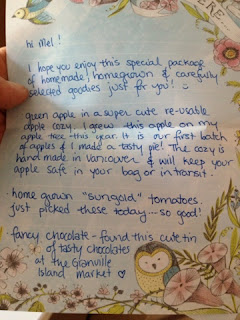 ERE
hi Mel!
I hope you enjoy this special package
of homemade! homegrown & carefully
selected goodies just for you! :)
green apple in a super cute re-usable
apple cozy. I grew this apple on my
apple tree this year. It is our first batch
of apples & I made a tasty pie! The cozy is
hand made in Vancouver & will keep your
apple safe in your bag or in transit.
home grown "sungold" tomatoes.
just picked these today... so good!
fancy chocolate - found this cute tin
of tasty chocolates
at the Granville
Island market ♡